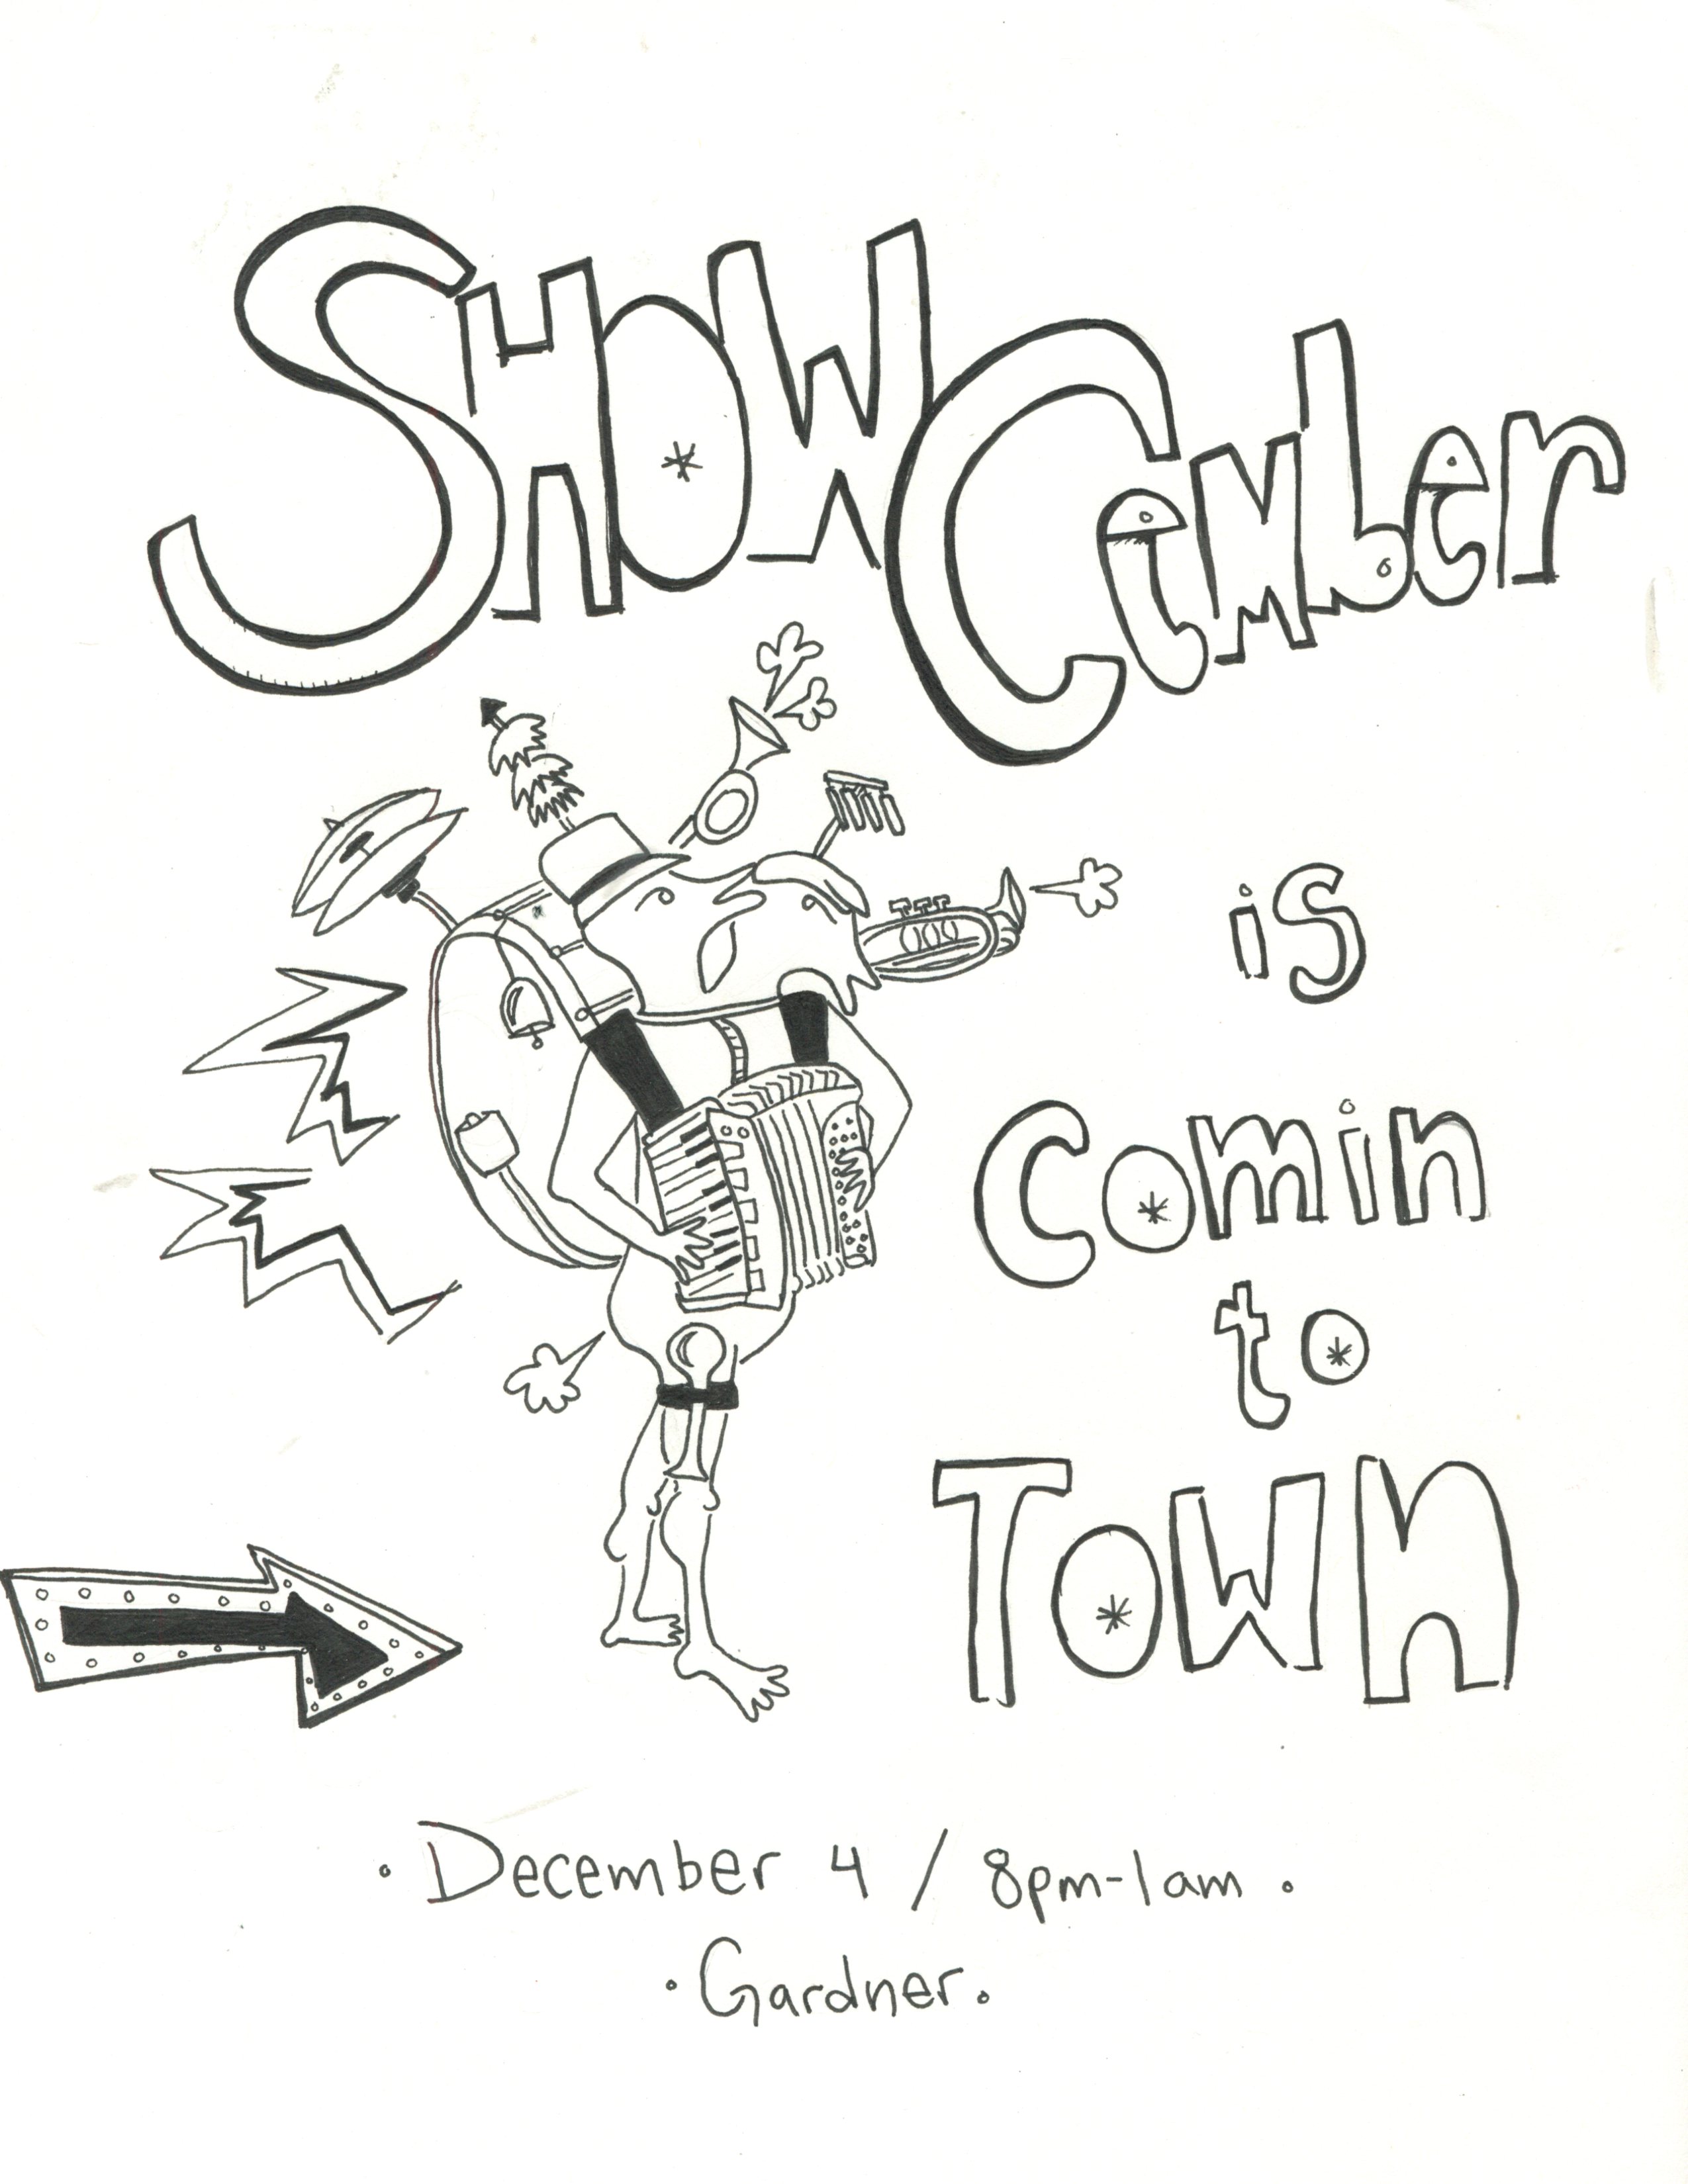 SHOWCeMber
is
Comin
to
TOWn
• December 4 / 8pm-1am •
• Gardner •